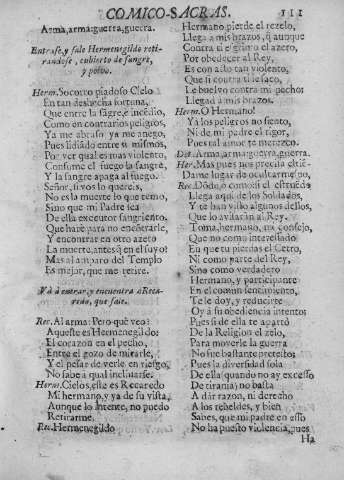 COMICO-SACRAS. 311
Arma, arma: guerra, guerra.
Entrase, y sale Hermenegildo reti-
randose, cubierto de sangre,
y polvo.
Herm. Socorro piadoso Cielo
En tan deshecha fortuna,
Que entre la sãgre, è incẽdio,
Como en contrarios peligros,
Ya me abraso, ya me anego,
Pues lidiãdo entre si mismos,
Por ver qual es mas violento,
Consume el fuego la sangre,
Y la sangre apaga al fuego.
Señor, si vos lo quereis,
No es la muerte lo que temo,
Sino que mi Padre sea
De ella executor sangriento.
Què harè para no encõtrarle,
Y encontrar en otro azero
La muerte, antes q̃ en el suyo?
Mas al amparo del Templo
Es mejor, que me retire.
Và à entrar, y encuentra à Reca-
redo, que sale.
Rec. Al arma: Pero què veo?
Aqueste es Hermenegildo:
El corazon en el pecho,
Entre el gozo de mirarle,
Y el pesar de verle en riesgo,
No sabe à qual inclinarse.
Herm. Cielos, este es Recaredo
Mi hermano, y ya de su vista,
Aunque lo intente, no puedo
Retirarme.
Rec. Hermenegildo
Hermano pierde el rezelo,
Llega à mis brazos, q̃ aunque
Contra ti esgrimo el azero,
Por obedecer al Rey,
Es con acto tan violento,
Que si contra ti le saco,
Le buelvo contra mi pecho:
Llega à mis brazos.
Herm. O Hermano!
Ya los peligros no siento,
Ni de mi padre el rigor,
Pues tal amor te merezco.
Den. Arma, arma: guerra, guerra.
Her. Mas pues nos precisa el riẽ-
Dame lugar de ocultarme,
Rec. Dõde, o como si el estruẽdo
Llega aqui de los Soldados,
Y te han visto algunos de ellos,
Que lo avisaràn al Rey.
Toma, hermano, mi consejo,
Que no como interessado
En que tu pierdas el Cetro,
Ni como parte del Rey,
Sino como verdadero
Hermano, y participante
En el comun sentimiento,
Te le doy, y reducirte
Oy à su obediencia intento:
Pues si de ella te apartò
De la Religion el zelo,
Para moverle la guerra
No fue bastante pretexto:
Pues la diversidad sola
De ella (quando no ay excesso
De tirania) no basta
A dàr razon, ni derecho
A los rebeldes, y bien
Sabes, que mi padre en esso
No ha puesto violencia, pues
Ha